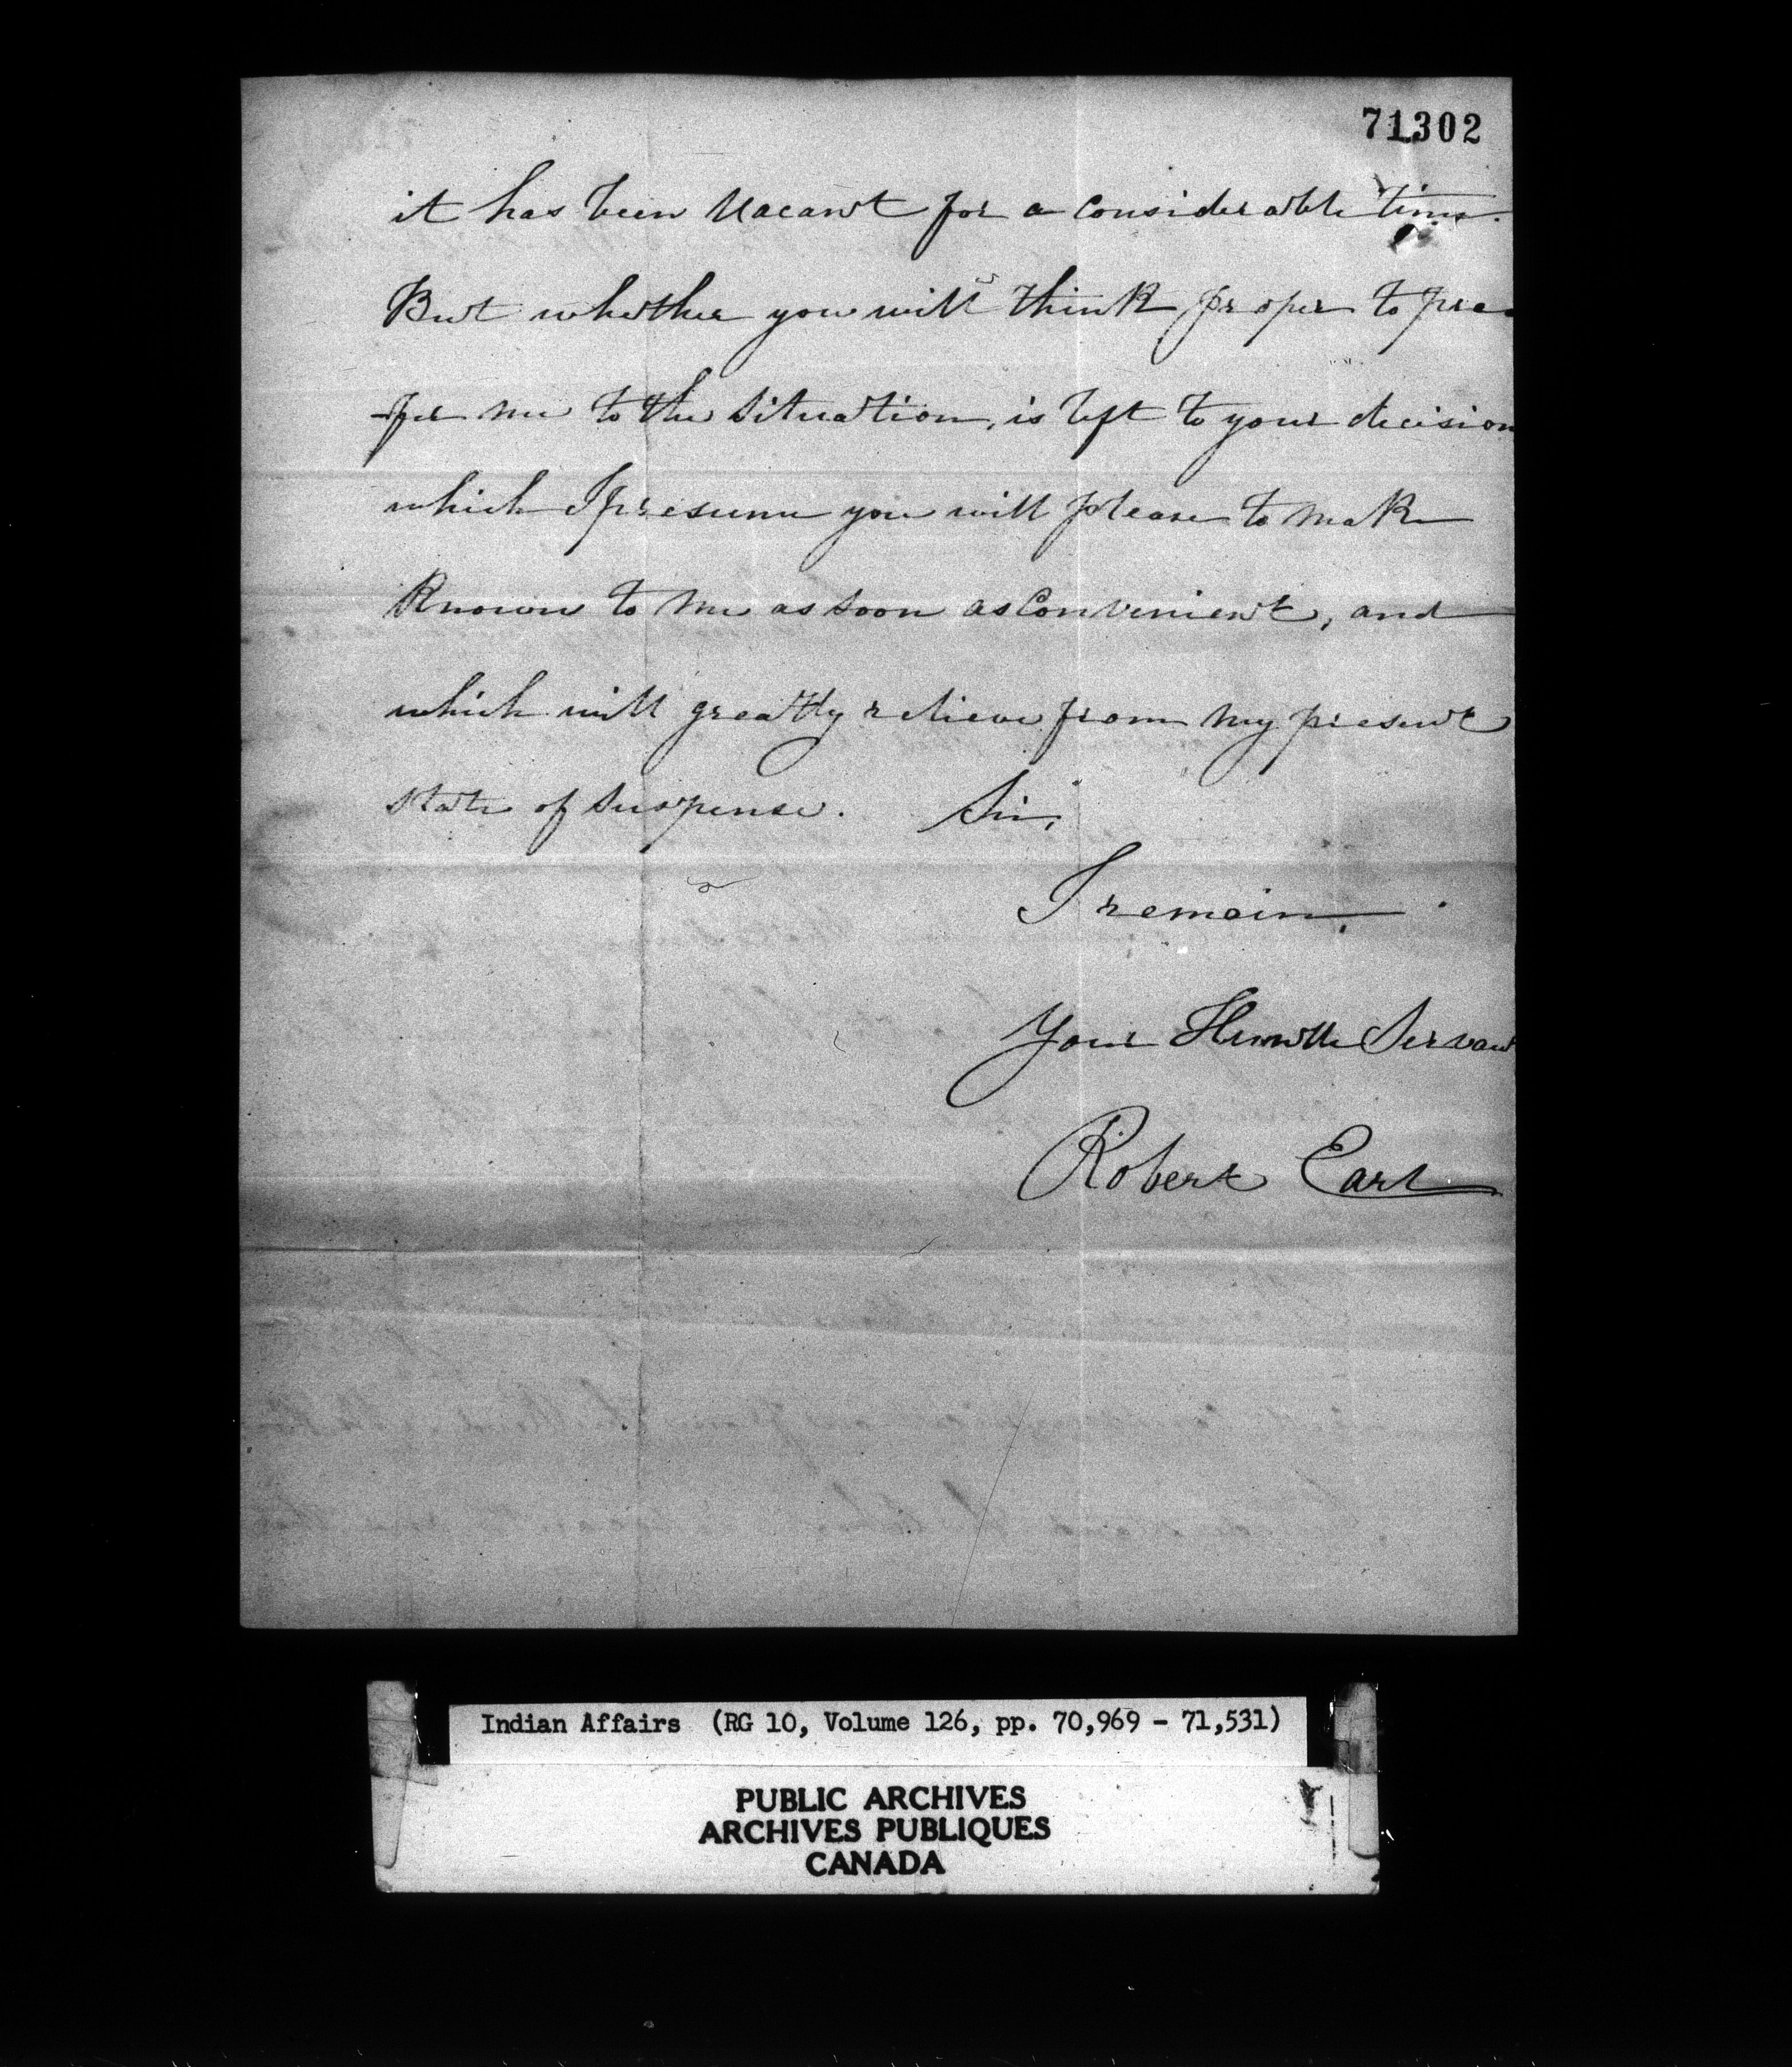 71302
it has been Vacant for a Considerable time.
But whether you will think proper to pre-
-fer me to the Situation, is left to your decision
which I presume you will please to make
Known to me as soon as Convenient, and
which will greatly relieve from my present
state of Suspense. Sir,
I remain,
Your Humble Servan
Robert Earl
Indian Affairs (RG 10, Volume 126, pp. 70,969 - 71,531)
PUBLIC ARCHIVES
ARCHIVES PUBLIQUES
CANADA